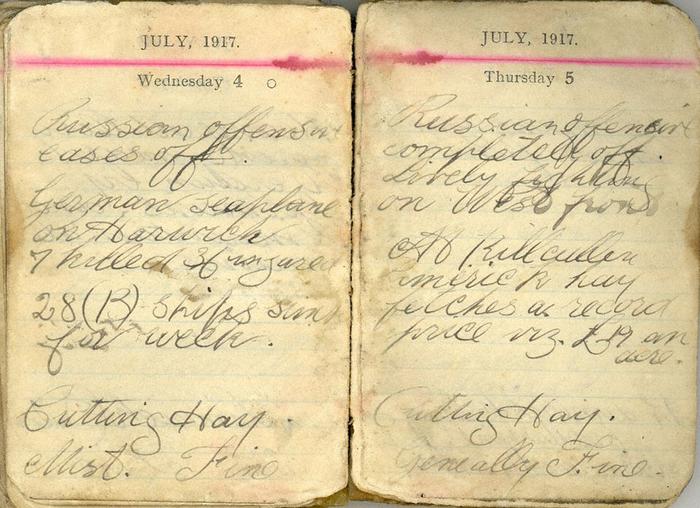 JULY, 1917.
Wednesday 4
Russian offensive
eases off.
German seaplane
on Harwich
7 killed 36 ingured
28 (B) ships sunk
for week.
Cutting Hay.
Mist. Fine
JULY, 1917.
Thursday 5
Russian offensive
completely off.
Lively fighting
on West front
At Killcullen
Limerick hay
fetches a record
price viz. £19 an
acre.
Cutting Hay.
Geneally Fine.